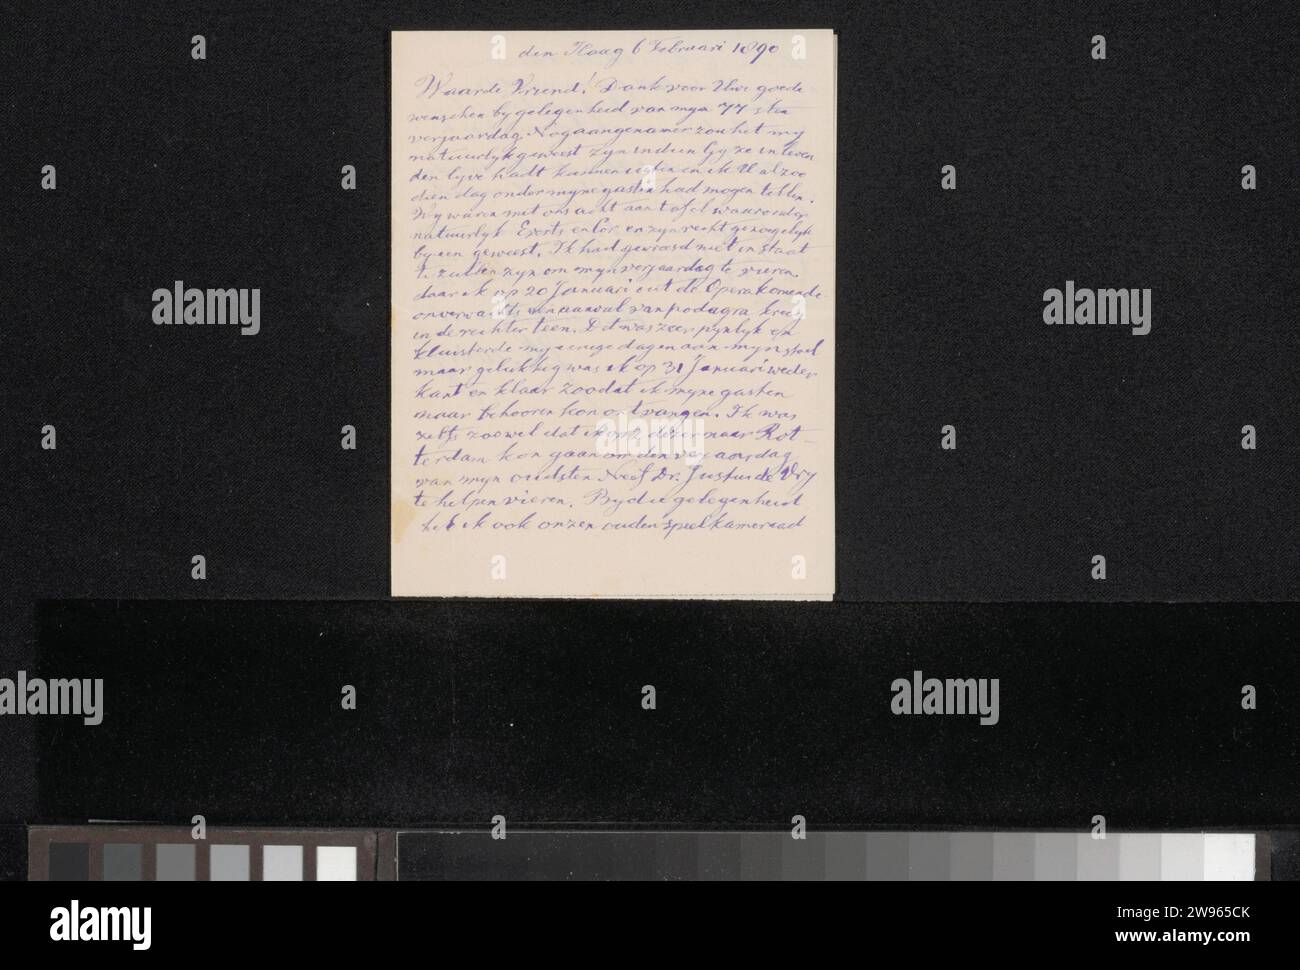 den Haag 6 Februari 1890
Waarde Vriend! Dank voor Uwe goede
wenschen by gelegenheid van myn 77 sten
verjaardag. Nog aangenamer zou het my
natuurlyk geweest zyn indien Gy ze in leven
den lyve hadt kunnen uiten en ik U alzoo
dien dag onder myne gasten had mogen tellen.
Wy waren met ons acht aan tafel waaronder
natuurlyk Everts en Cor en zyn recht genoegelyk
byeen geweest. Ik had gevreesd niet in staat
te zullen zyn om myn verjaardag te vieren.
daar ik op 20 Januari uit de Opera komende
onverwachts een aanval van podagra kreeg
in de rechter teen. Dit was zeer pynlyk en
kluisterde my eenige dagen aan myn stoel
maar gelukkig was ik op 31 Januari weder
kant en klaar zoodat ik myne gasten
naar behooren kon ontvangen. Ik was
zelfs zoo wel dat ik op 2 dezer naar Rot-
terdam kon gaan om den verjaardag
van myn oudsten Neef Dr. Justus de Vry
te helpen vieren. By die gelegenheid
heb ik ook onzen ouden speelkameraad
alamy
alamy
Image ID: 2W965CK
www.alamy.com